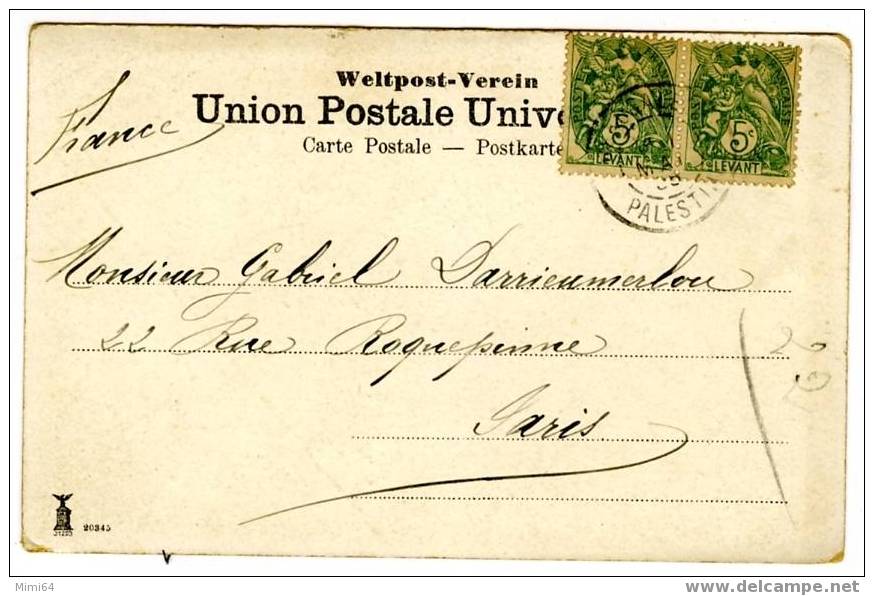 Weltpost-Verein
Union Postale Unive
Carte Postale — Postkarte
France
5c 5c
LEVANT LEVANT
PALESTI
Monsieur Gabriel Darrieumerlou
22 Rue Roquepinne
Paris
20345
Mimi64
www.delcampe.net